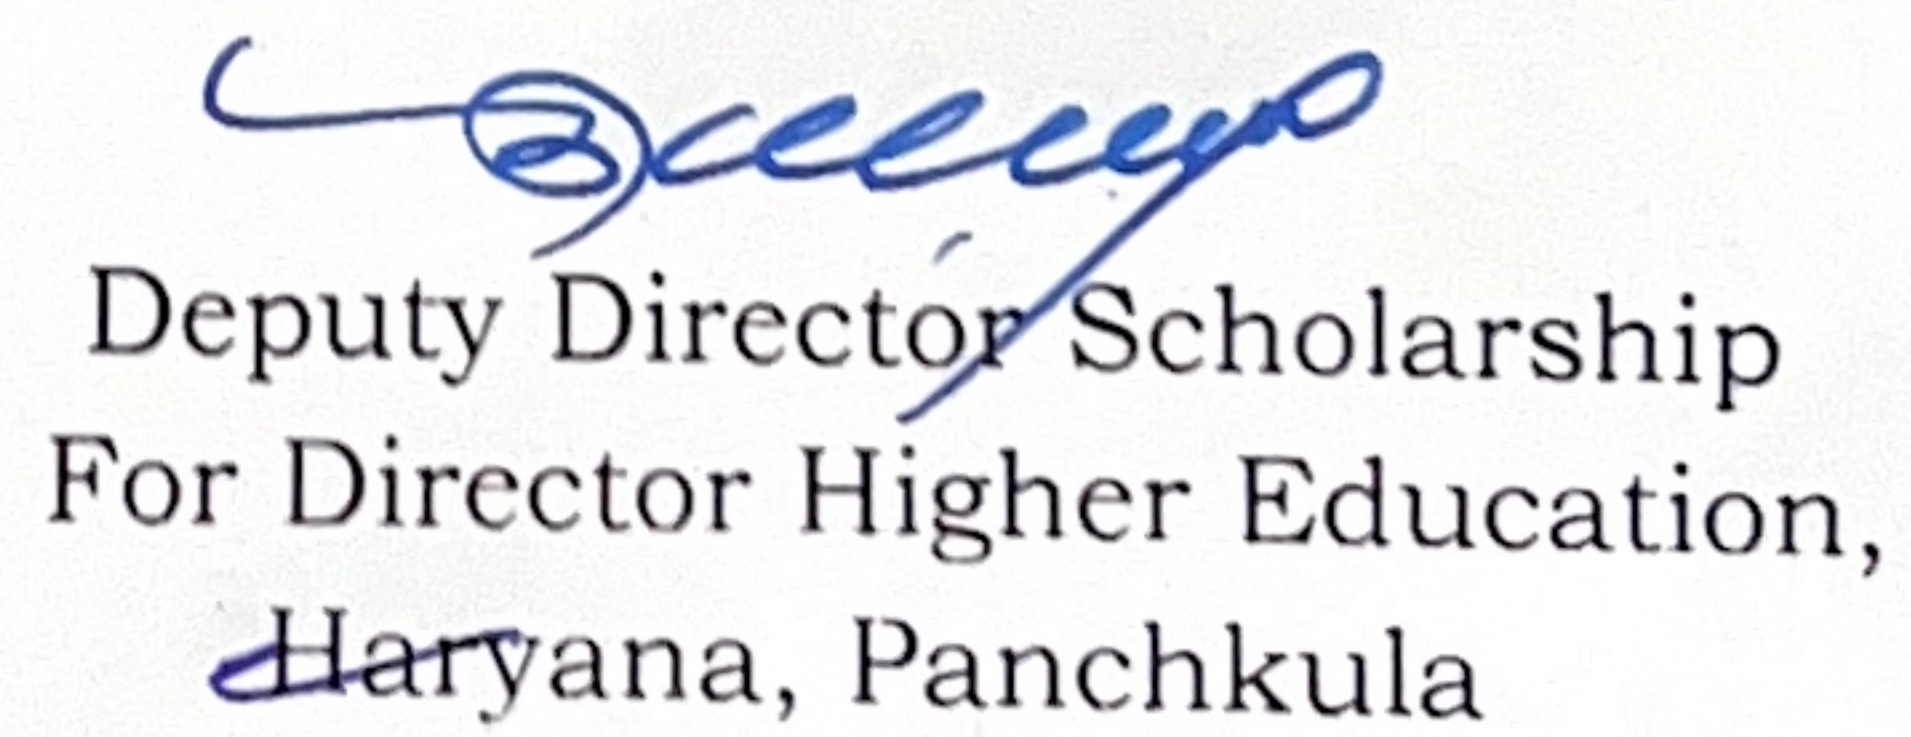 Deputy Director Scholarship
For Director Higher Education,
Haryana, Panchkula